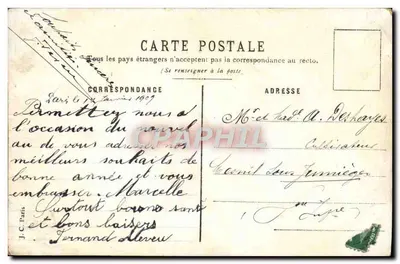 CARTE POSTALE
Tous les pays étrangers n'acceptent pas la correspondance au recto.
(Se renseigner à la poste)
CORRESPONDANCE
ADRESSE
Paris le janvier 1909
Permettez nous a
l'occasion du nouvel
au de vous adresser nos
meilleurs souhaits de
bonne année et vous
embrasser Marcelle
Surtout bonne santé
et bons baisers
Fernand Aleveu
Mr et Mad A. Deshayes
Cultivateur
Mesnil sous Jumièges
par
J. C. Paris
CPAPHIL